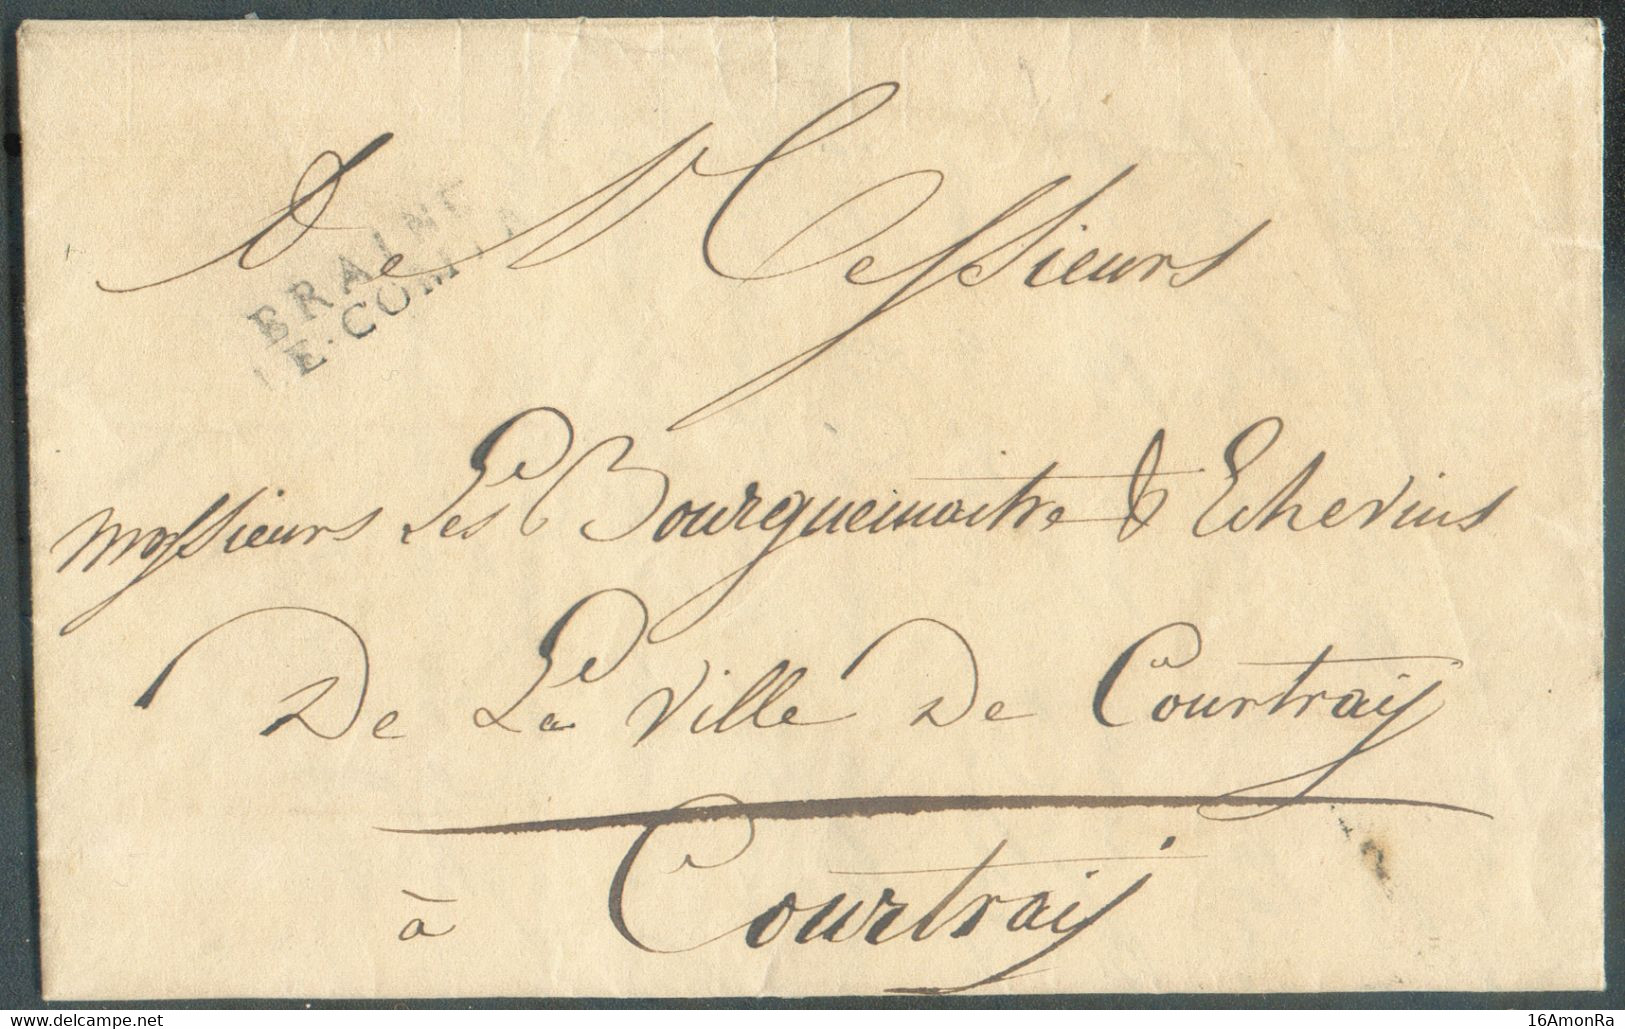 De Messieurs
BRAINE
LE-COMTE
Messieurs Les Bourguemaitre & Echevins
De La Ville De Courtray
à Courtray
16AmonRa